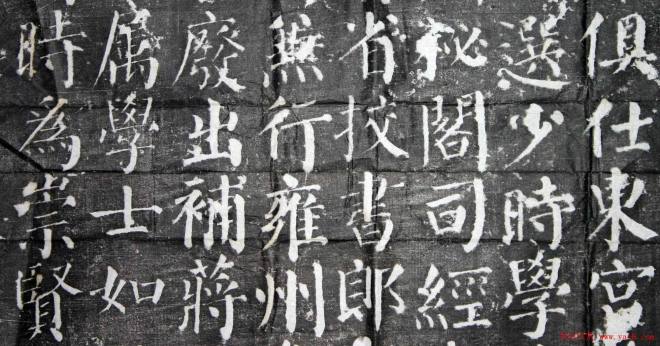 俱仕東宮
選少時學
秘閣司經
省挍書郎
無行雍州
廢出補蔣
属學士如
時為崇賢